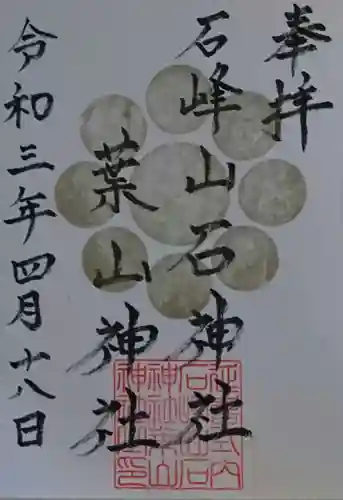 奉拝
石峰山石神社
葉山神社
令和三年四月十八日